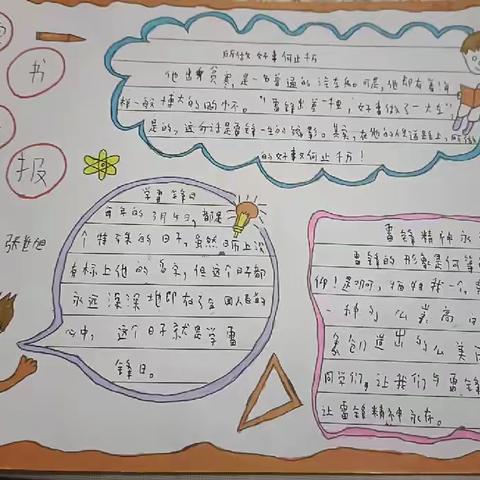 书
报
所做好事何止千万
他出身贫寒,是一名普通的汽车兵。可是,他却有着海
样一般博大的胸怀。“雷锋出差一千里,好事做了一火车”
是的,这句话是雷锋一生的缩影。其实,在他的人生道路上,所做
的好事又何止千万!
学雷锋日
每年的3月4日,都是
个特殊的日子,虽然日历上没
有标上他的名字,但这个日子都
永远深深地印在了全国人民的
心中, 这个日子就是学雷
锋日。
张
雷锋精神永
雷锋的形象是何等
仰!是啊,
一种
象们道出的么美
同学们,让我们与雷锋
让雷锋精神永存。